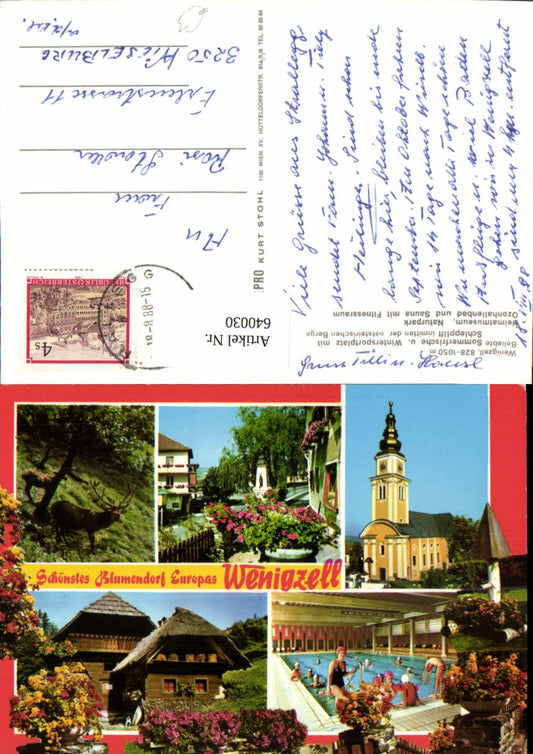 Wenigzell, 828-1050 m
Beliebte Sommerfrische u. Wintersportplatz mit
Schlepplift inmitten der oststeirischen Berge
Heimatmuseum, Naturpark
Ozonhallenbad und Sauna mit Fitnessraum
Viele Grüsse aus
sendet Fam.
Sind schon
lange hier, bleiben bis ende
September. Im Oktober fahren
wir 14 Tage nach
Wir machen alle Tage schöne
Ausflüge u. viel Baden
gehen wir in Wenigzell
sind nur 4 km entfernt
18.VIII.88
Gruss
PRO KURT STOHL 1150 WIEN XV, HÜTTELDORFERSTR. 81a/5/8 TEL. 92 03 64
REPUBLIK ÖSTERREICH
4 S
18-8.88-15
An
Frau
Rosi
Erlenstrasse 11
3250 WIESELBURG
Artikel Nr.
640030
Schönstes Blumendorf Europas Wenigzell